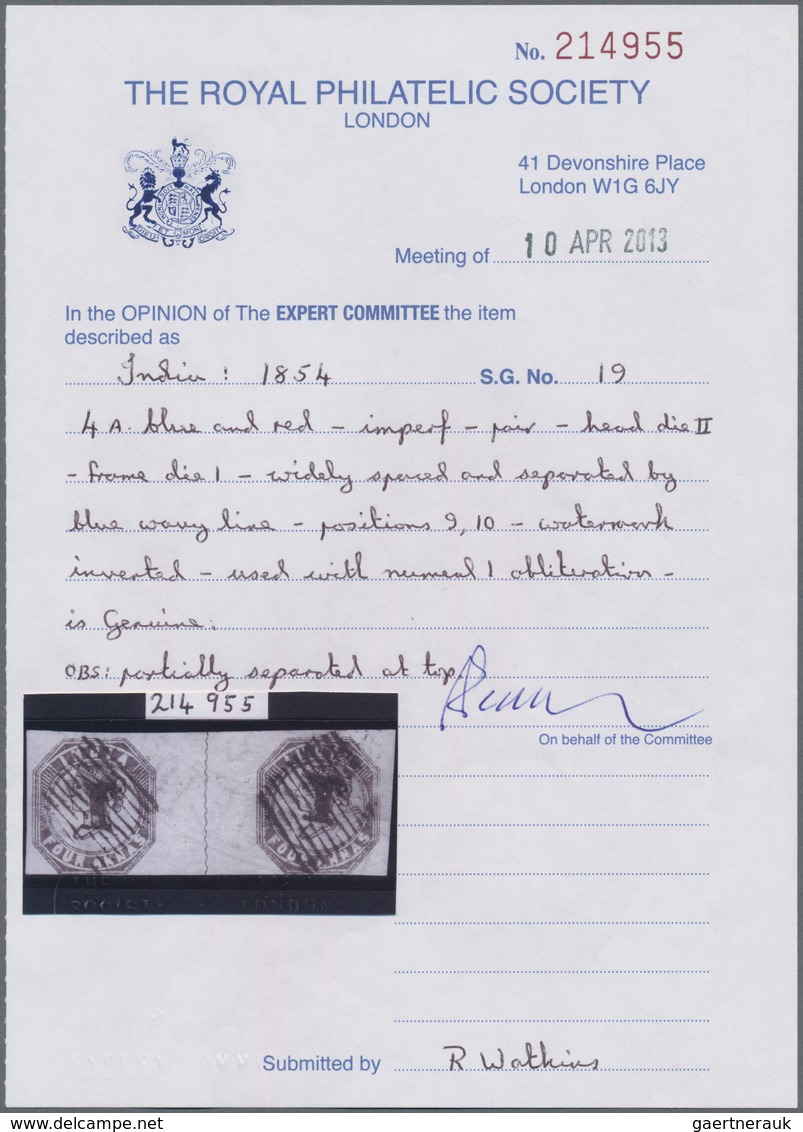 No. 214955
THE ROYAL PHILATELIC SOCIETY
LONDON
41 Devonshire Place
London W1G 6JY
Meeting of 10 APR 2013
In the OPINION of The EXPERT COMMITTEE the item
described as
India: 1854 S.G. No. 19
4 A. blue and red - imperf - pair - head die II
- frame die 1 - widely spaced and separated by
blue wavy line - positions 9, 10 - watermark
inverted - used with numeral 1 obliteration -
is Genuine.
OBS: partially separated at top.
On behalf of the Committee
214 955
INDIA INDIA
FOUR ANNAS FOUR ANNAS
SOCIETY LONDON
Submitted by R Watkins
gaertnerauk